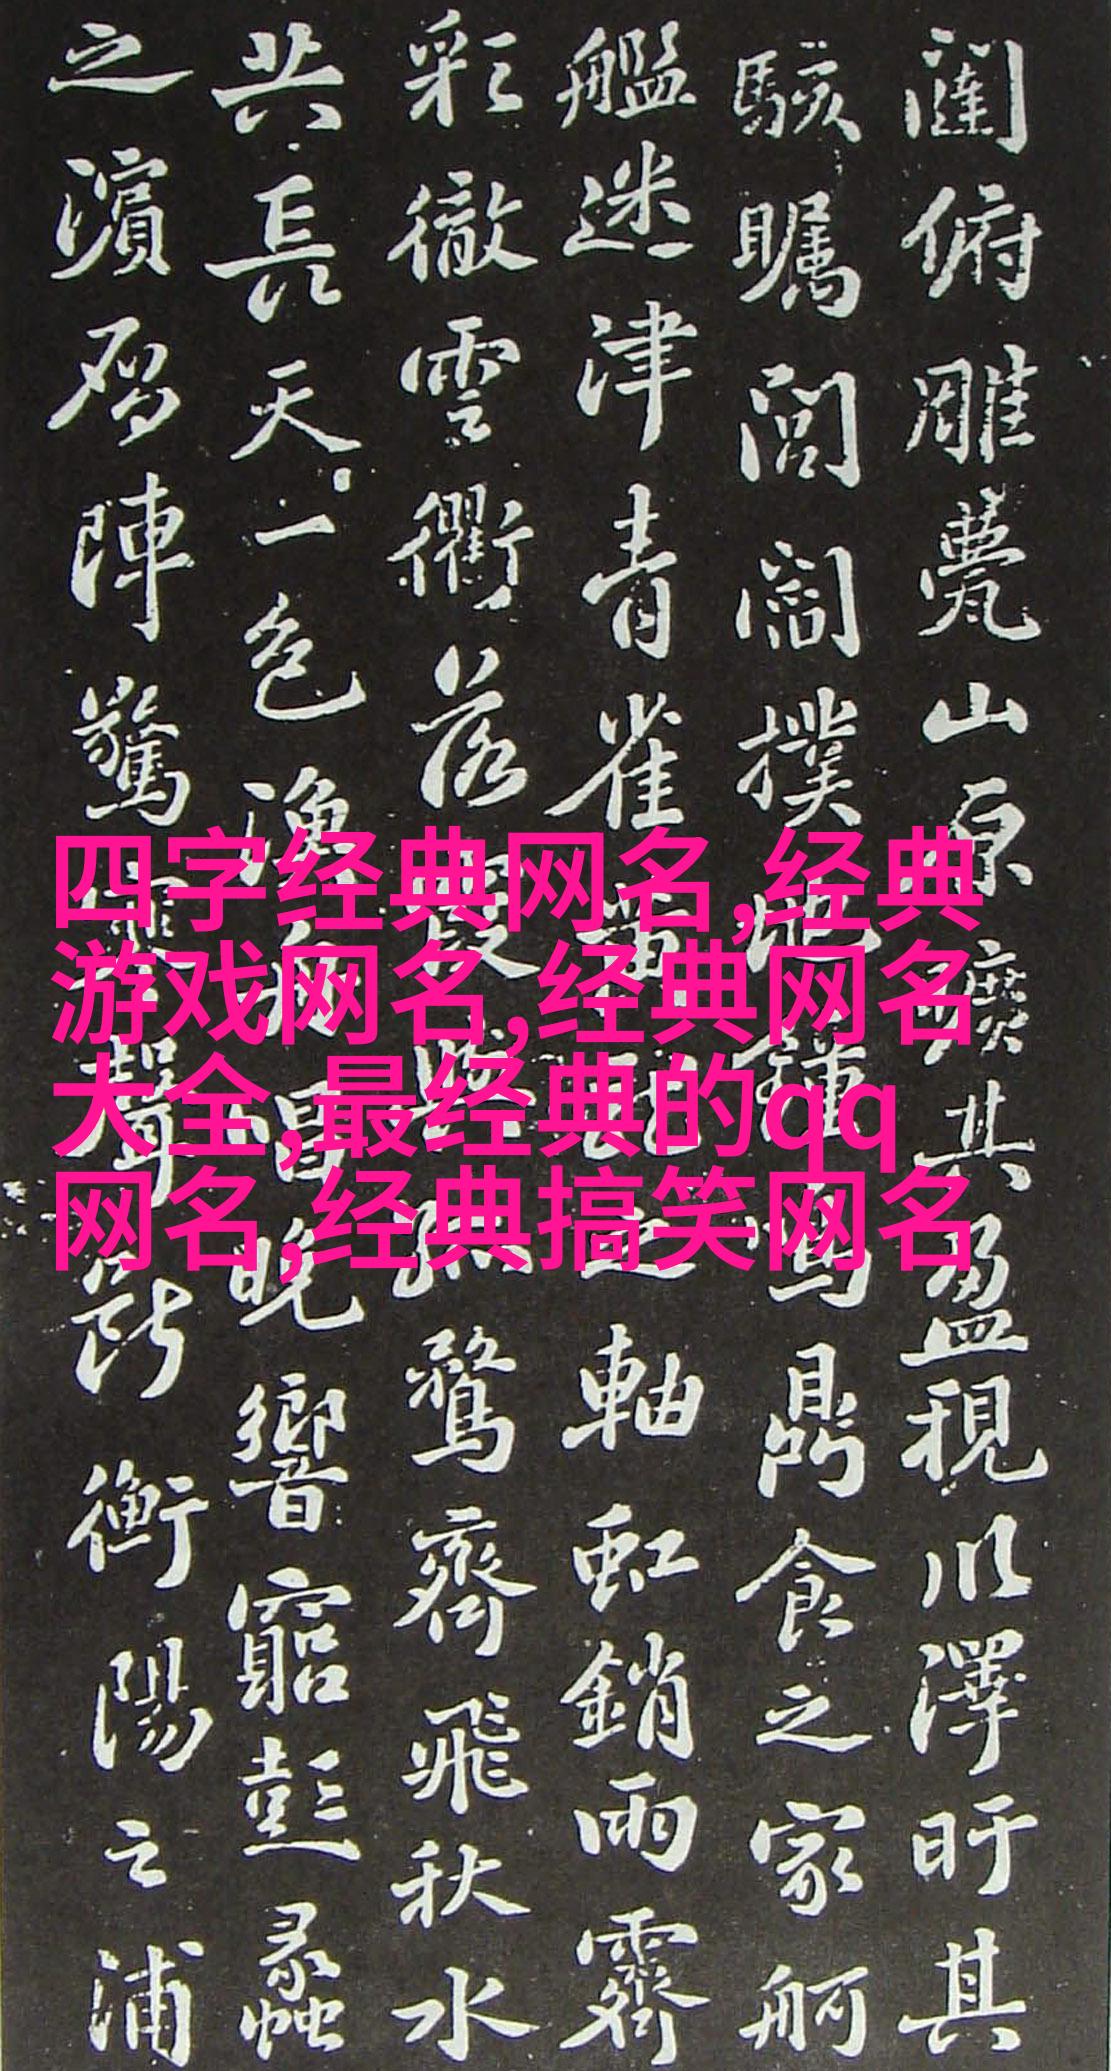 闥俯雕甍山原曠其盈視川澤盱其
駭矚閭閻撲地鍾鳴鼎食之家舸
艦迷津青雀黃龍之軸虹銷雨霽
彩徹雲衢落霞與孤鶩齊飛秋水
共長天一色漁舟唱晚響窮彭蠡
之濱鴈陣驚寒聲斷衡陽之浦
四字经典网名,经典
游戏网名,经典网名
大全,最经典的qq
网名,经典搞笑网名